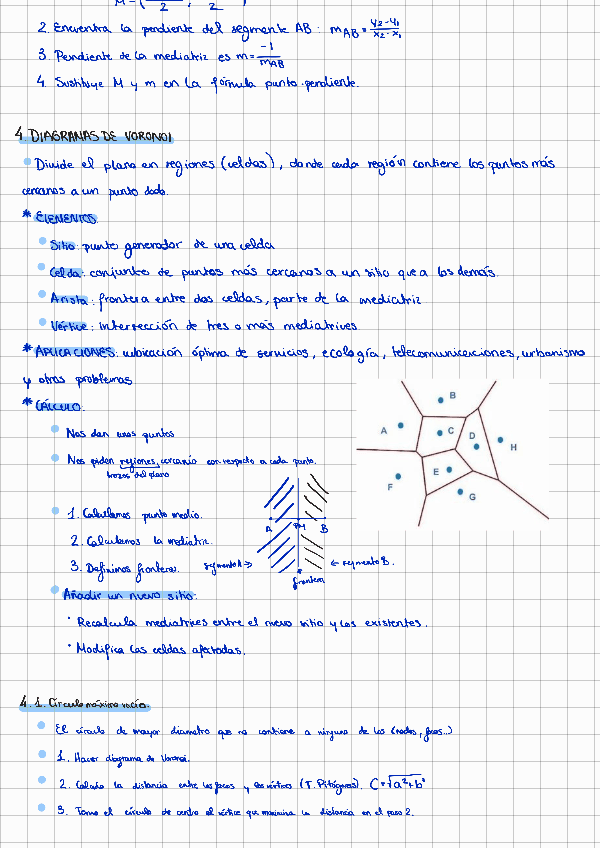 M=( 2 , 2
2. Encuentra la pendiente del segmento AB: m_AB = y₂-y₁ / x₂-x₁
3. Pendiente de la mediatriz es m = -1 / m_AB
4. Sustituye M y m en la fórmula punto-pendiente.
4. DIAGRAMAS DE VORONOI
Divide el plano en regiones (celdas), donde cada región contiene los puntos más
cercanos a un punto dado.
* ELEMENTOS
Sitio: punto generador de una celda
Celda: conjunto de puntos más cercanos a un sitio que a los demás.
Arista: frontera entre dos celdas, parte de la mediatriz
Vértice: intersección de tres o más mediatrices
* APLICACIONES: ubicación óptima de servicios, ecología, telecomunicaciones, urbanismo
y otros problemas
* CÁLCULO.
Nos dan unos puntos
Nos piden regiones, cercanía con respecto a cada punto.
trozos del plano
1. Calculamos punto medio.
2. Calculamos la mediatriz.
3. Definimos frontera.
A PM B
segmento A →
← segmento B.
frontera
A B C D E F G H
Añadir un nuevo sitio:
· Recalcula mediatrices entre el nuevo sitio y los existentes.
· Modifica las celdas afectadas.
4.1. Círculo máximo vacío.
El círculo de mayor diametro que no contiene a ninguno de los (nodos, focos..)
1. Hacer diagrama de Voronoi.
2. Calculo la distancia entre los focos y los vértices (T. Pitágoras). C=√a²+b²
3. Tomo el círculo de centro el vértice que maximiza la distancia en el paso 2.